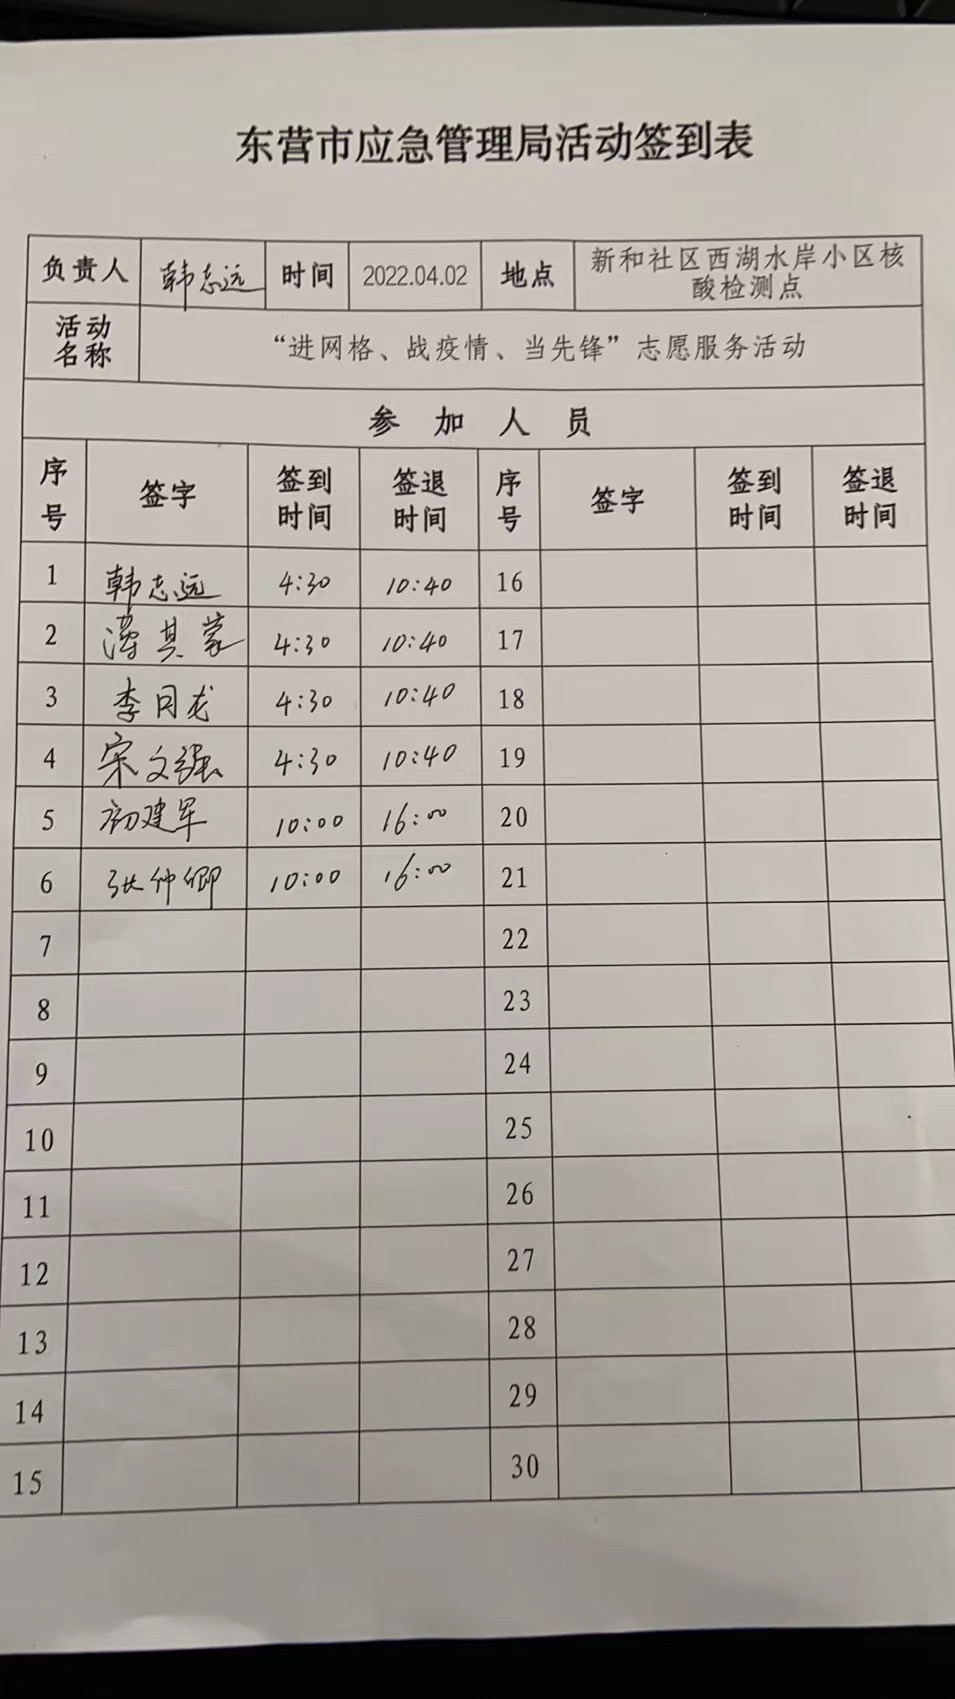 东营市应急管理局活动签到表
负责人 韩志远 时间 2022.04.02 地点 新和社区西湖水岸小区核
酸检测点
活动
名称 “进网格、战疫情、当先锋”志愿服务活动
参 加 人 员
序
号 签字 签到
时间 签退
时间 序
号 签字 签到
时间 签退
时间
1 韩志远 4:30 10:40 16
2 其蒙 4:30 10:40 17
3 李月龙 4:30 10:40 18
4 宋文强 4:30 10:40 19
5 初建军 10:00 16:00 20
6 张仲卿 10:00 16:00 21
7 22
8 23
9 24
10 25
11 26
12 27
13 28
14 29
15 30